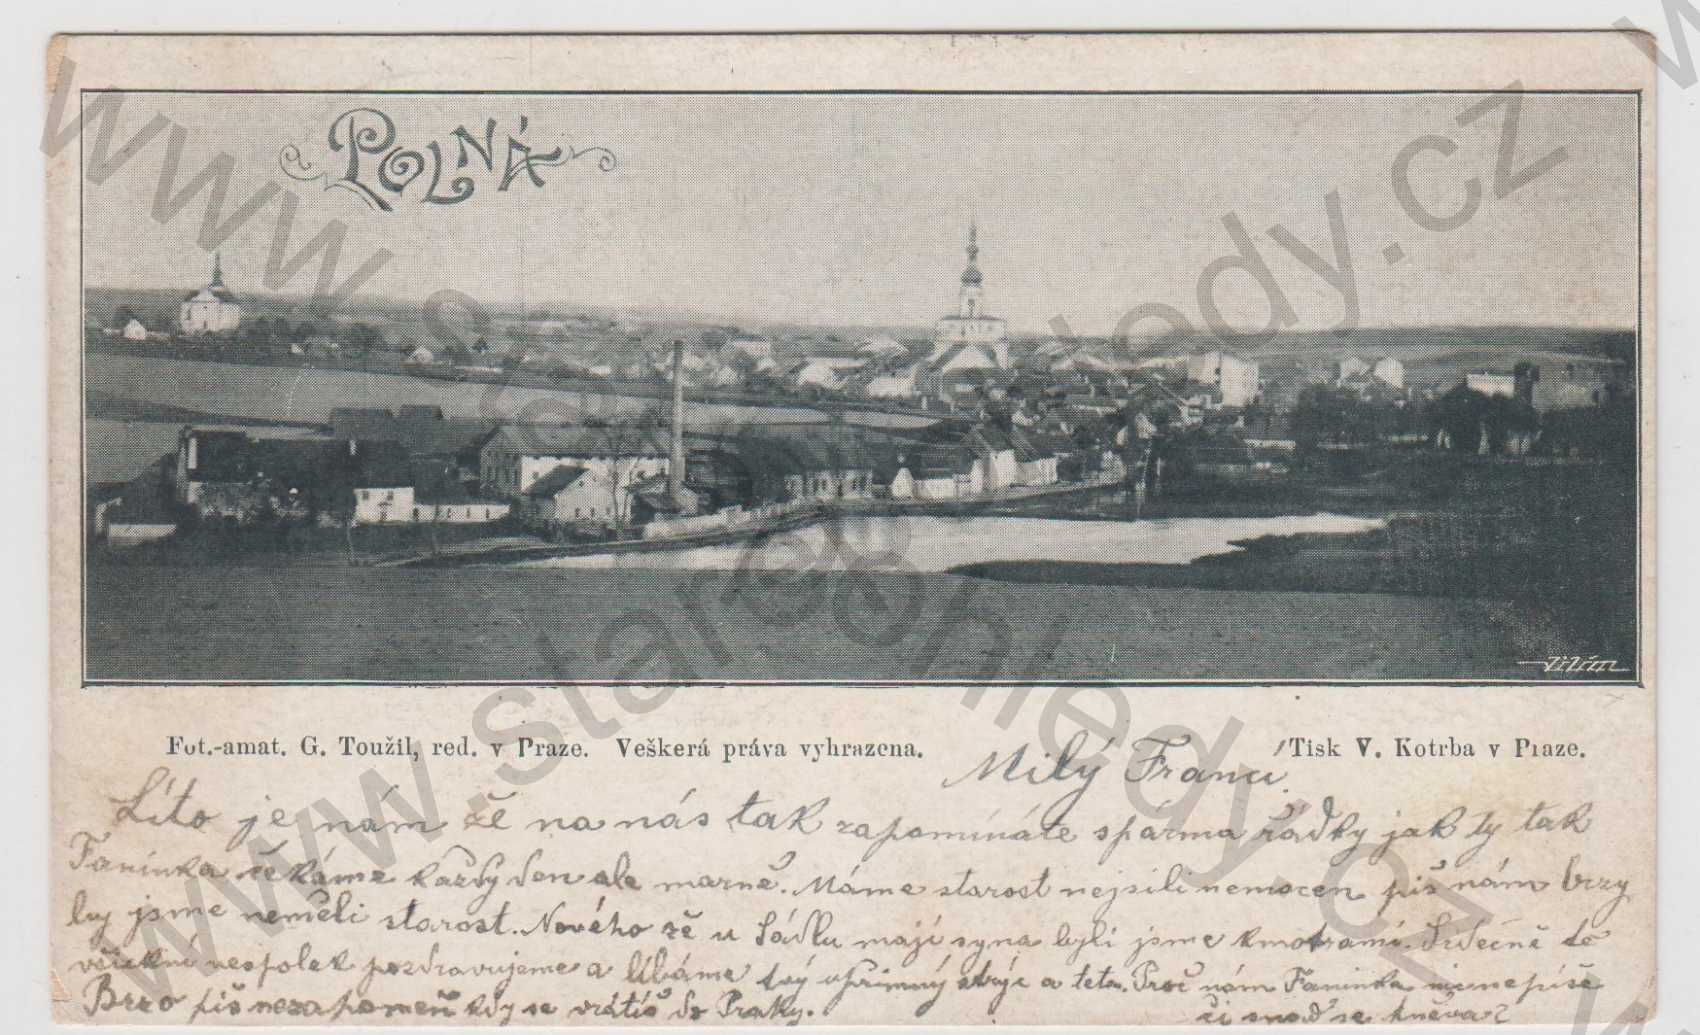 POLNÁ
Vilím
Fot.-amat. G. Toužil, red. v Praze. Veškerá práva vyhrazena.
Tisk V. Kotrba v Praze.
Milý Franci
Líto je nám že na nás tak zapomínáte spárma řádky jak ty tak
Faninka čekáme každy den ale marně. Máme starost nejsili nemocen piš nám brzy
by jsme neměli starost. Nového že u Sádlu mají syna byli jsme kmotrami. Srdečně tě
všickni nespolek pozdravujeme a líbáme tvý upřimný strýc a teta. Proč nám Faninka nic nepíše
Brzo piš nezapomeň kdy se vrátíš do Prahy.
či snad se hněvá?
www.stareohledy.cz
www.stareohledy.cz